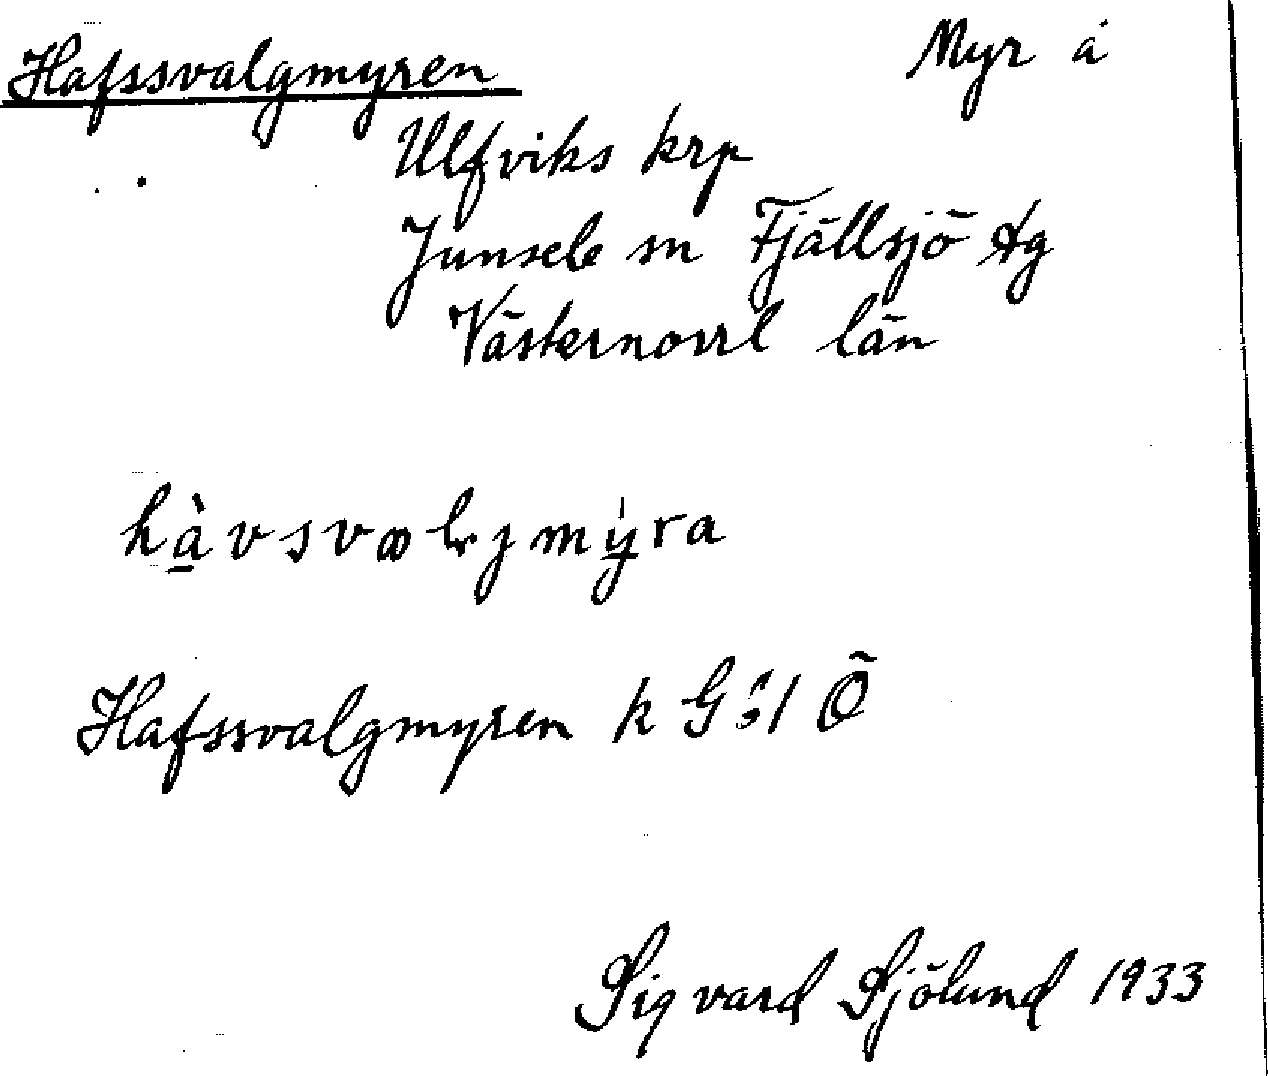 Hafssvalgmyren Myr å
Ulfviks krp
Junsele sn Fjällsjö tg
Västernorrl län
hàvsvaljmýra
Hafssvalgmyren k G Ö
Sigvard Sjölund 1933